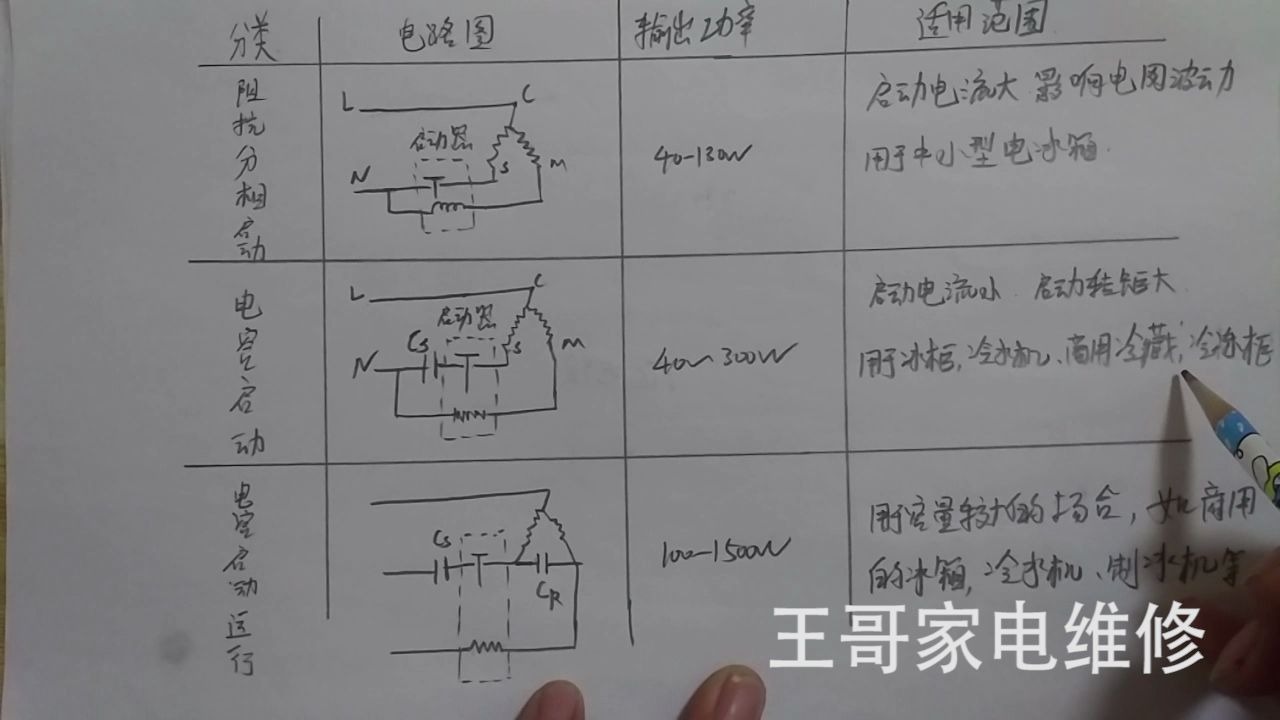 分类 电路图 输出功率 适用范围
阻抗分相启动
L C
启动器
N S M
40-130W
启动电流大 影响电网波动
用于中小型电冰箱.
电容启动
L C
启动器
Cs
N S M
40~300W
启动电流小. 启动转矩大
用于冰柜,冷水机、商用冷藏,冷冻柜
电容启动运行
Cs
CR
100-1500W
用于容量较大的场合,如商用
的冰箱,冷水机、制冰机等
王哥家电维修